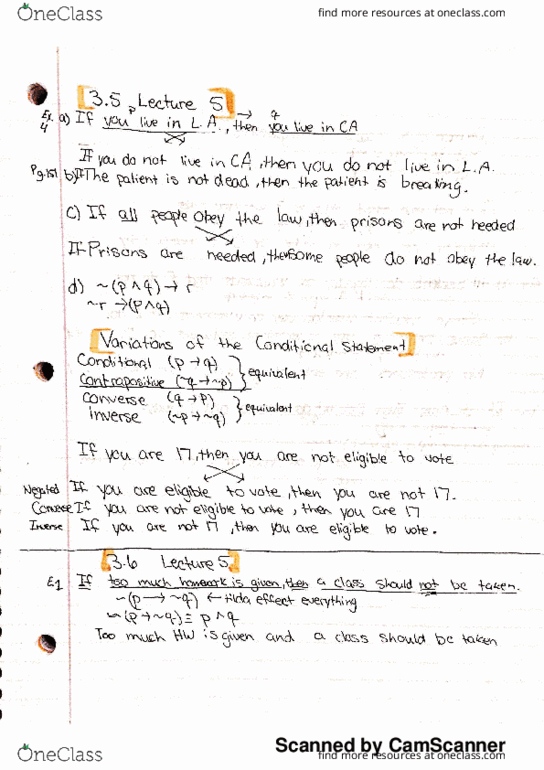 OneClass
find more resources at oneclass.com
3.5 Lecture 5
Ex. 4 a) If you live in L.A., then you live in CA
p → q
If you do not live in CA, then you do not live in L.A.
Pg.151 b) If The patient is not dead, then the patient is breaking.
C) If all people obey the law, then prisons are not needed
If Prisons are needed, then some people do not obey the law.
d) ~(p ∧ q) → r
~r → (p ∧ q)
Variations of the Conditional Statement
Conditional (p → q)
Contrapositive (~q → ~p) } equivalent
Converse (q → p)
Inverse (~p → ~q) } equivalent
If you are 17, then you are not eligible to vote
Negated If you are eligible to vote, then you are not 17.
Converse If you are not eligible to vote, then you are 17
Inverse If you are not 17, then you are eligible to vote.
3.6 Lecture 5
E1 If too much homework is given, then a class should not be taken.
~(p → ~q) ← tilda effect everything
~(p → ~q) ≡ p ∧ q
Too much HW is given and a class should be taken
Scanned by CamScanner
OneClass
find more resources at oneclass.com